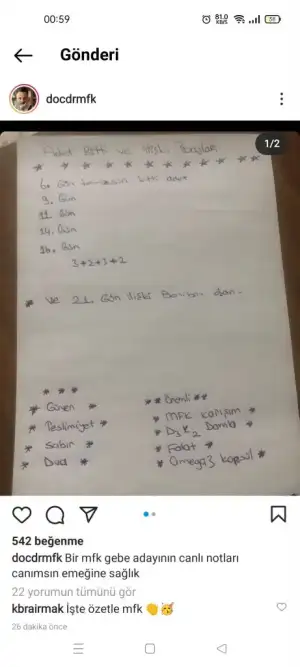 00:59
81.0 KB/S
58
Gönderi
docdrmfk
1/2
Adet Bitti ve İlişki Başlar
6. Gün
9. Gün
11. Gün
14. Gün
16. Gün
3+2+3+2
* ve 21. Gün ilişki
* Güven *
* Teslimiyet *
* Sabır *
* Dua *
** Önemli **
* MFK karışım *
* D3K2 Damla *
* Folat *
* Omega3 kapsül *
542 beğenme
docdrmfk Bir mfk gebe adayının canlı notları
canımsın emeğine sağlık
22 yorumun tümünü gör
kbrairmak İşte özetle mfk 👏🥳
26 dakika önce